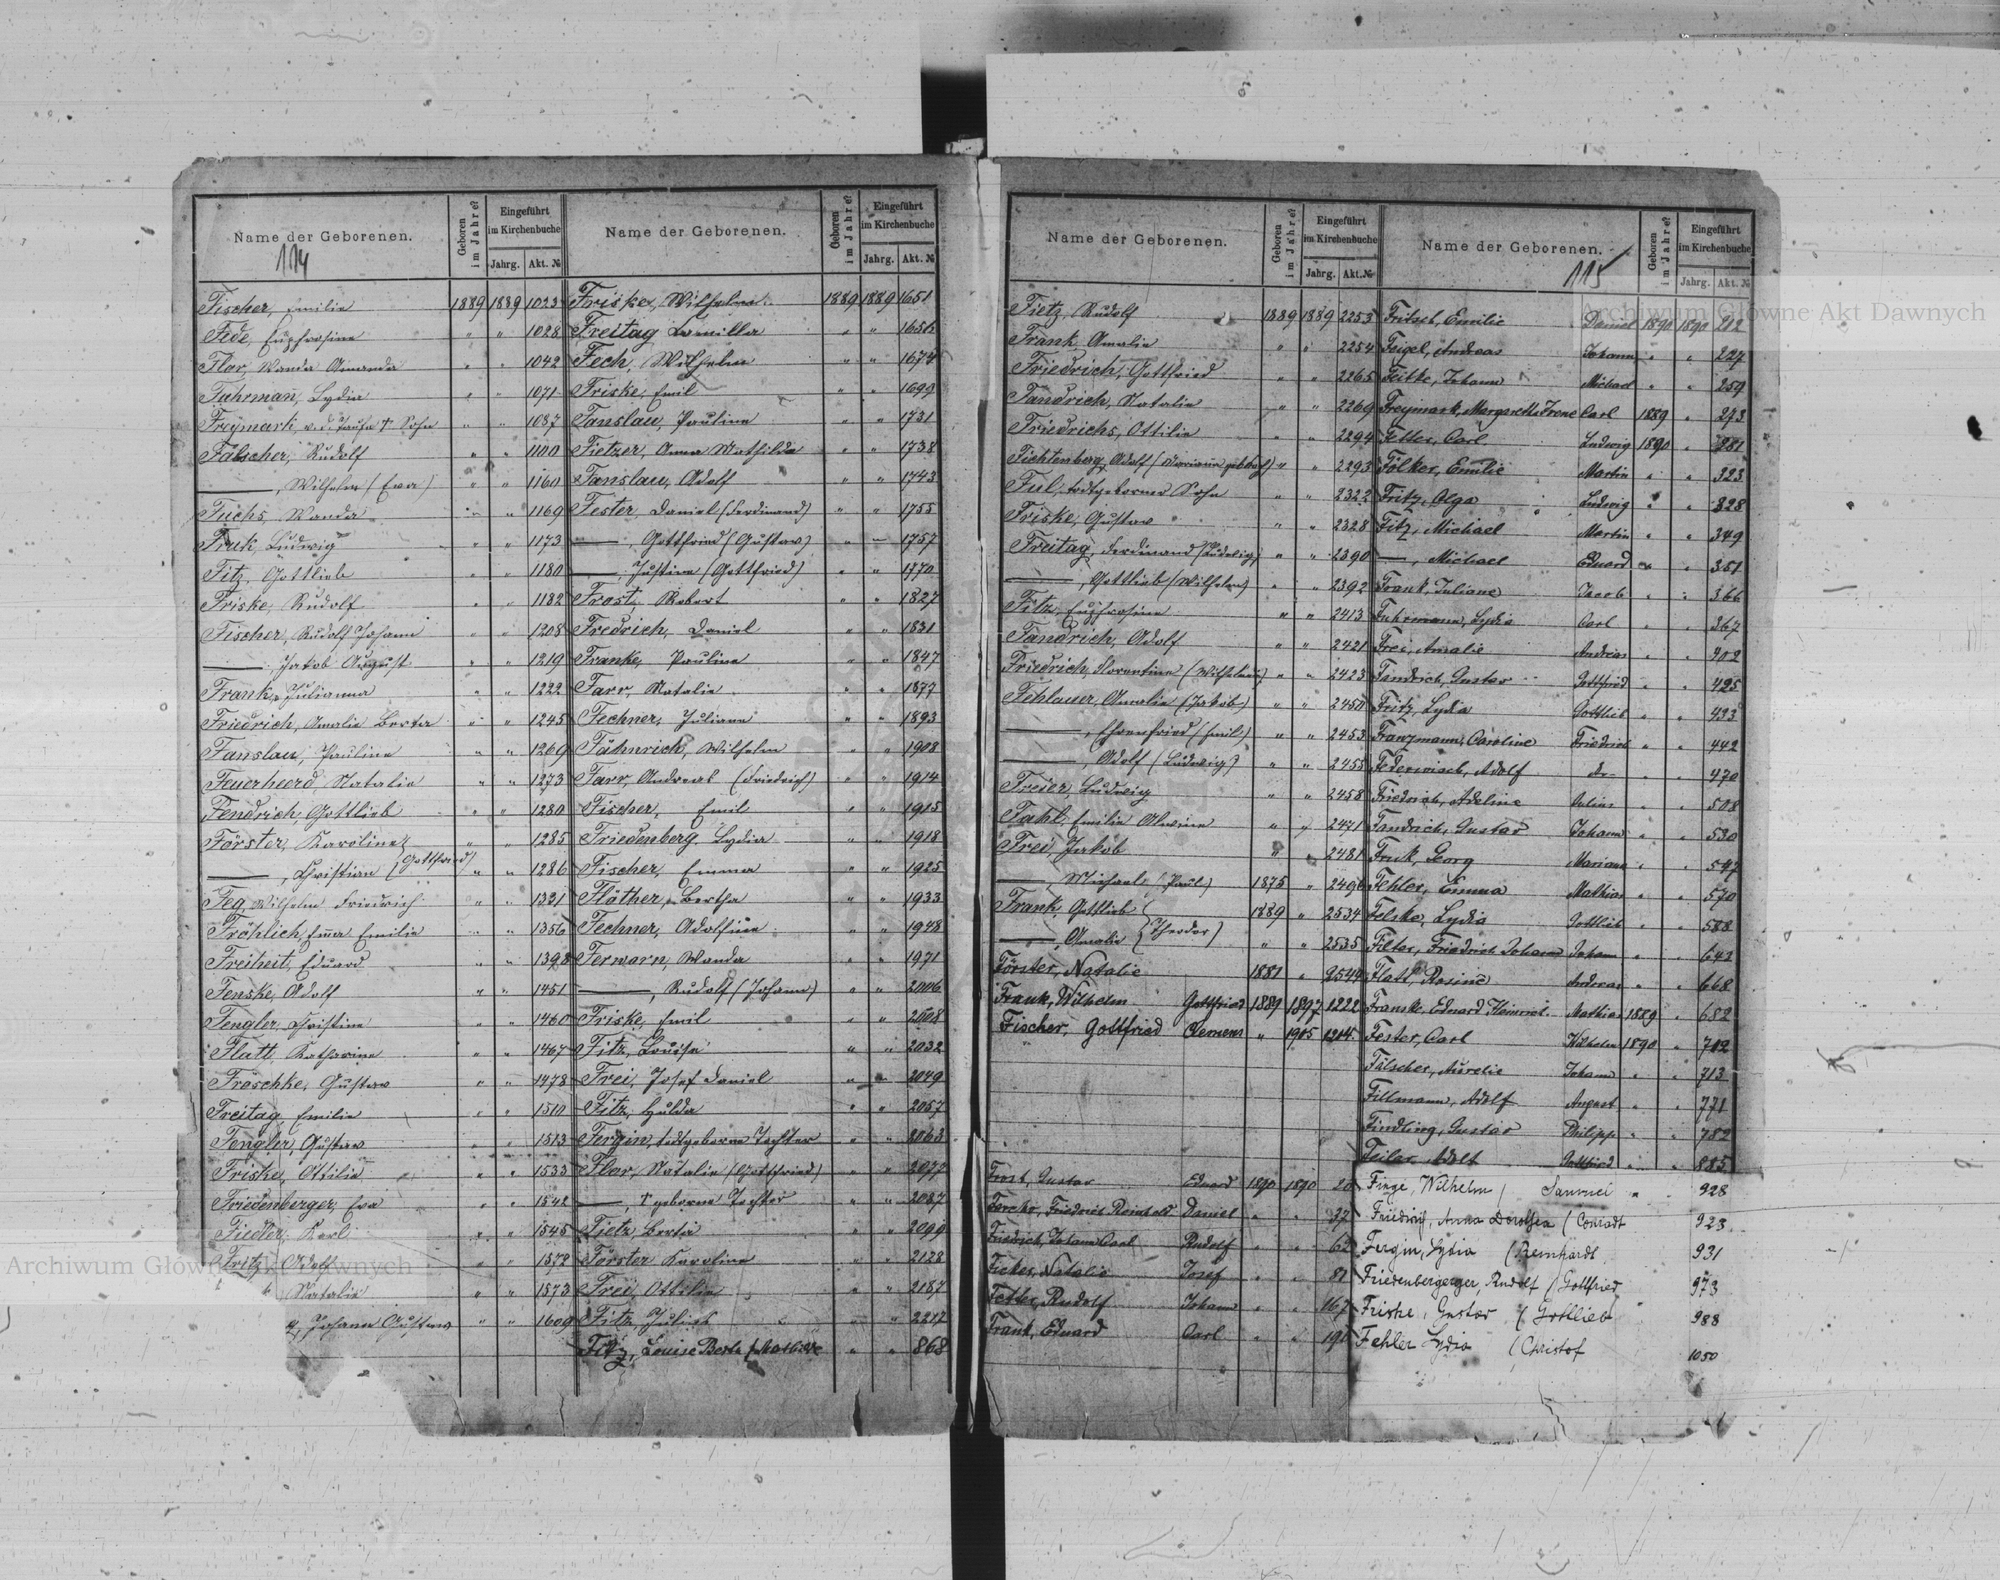 Name der Geborenen.
Geboren im Jahre?
Eingeführt im Kirchenbuche
Jahrg. Akt. №
114
Fischer, Emilie 1889 1889 1023
Fide, Euphrosine " " 1028
Flor, Wanda Amanda " " 1042
Fuhrmañ, Lydia " " 1071
Freymark, v. d. Taufe † Sohn " " 1087
Fälscher, Rudolf " " 1100
—, Wilhelm (Ewa) " " 1160
Fuchs, Wanda " " 1169
Fruk, Ludwig " " 1173
Fitz, Gottlieb " " 1180
Friske, Rudolf " " 1182
Fischer, Rudolf Johann " " 1208
— Jakob August " " 1219
Frank, Julianna " " 1222
Friedrich, Amalie Berta " " 1245
Fanslau, Pauline " " 1269
Feuerheerd, Natalie " " 1273
Fendrich, Gottlieb " " 1280
Förster, Karoline " " 1285
—, Christian (Gottfried) " " 1286
Feg, Wilhelm Friedrich " " 1321
Fröhlich, Em̄a Emilie " " 1356
Freiheit, Eduard " " 1398
Fenske, Adolf " " 1451
Fengler, Christine " " 1460
Flatt, Katharine " " 1467
Fröschke, Gustaw " " 1478
Freitag, Emilie " " 1510
Fengler, Gustaw " " 1513
Friske, Ottilie " " 1533
Friedenberger, Eva " " 1542
Fiedler, Karl " " 1545
Fritz, Adolf " " 1572
Natalie " " 1573
Johann Gustaw " " 1609
Name der Geborenen.
Geboren im Jahre?
Eingeführt im Kirchenbuche
Jahrg. Akt. №
Friske, Wilhelm 1889 1889 1651
Freitag, Kamilla " " 1656
Fech, Wilhelm " " 1674
Friske, Emil " " 1699
Fanslau, Pauline " " 1731
Fietzer, Anna Mathilda " " 1738
Fanslau, Adolf " " 1743
Fester, Daniel (Ferdinand) " " 1755
—, Gottfried (Gustaw) " " 1757
— Justine (Gottfried) " " 1770
Frost, Robert " " 1827
Fredrich, Daniel " " 1831
Franke, Pauline " " 1847
Farr, Natalie " " 1877
Fechner, Juliane " " 1893
Fähnrich, Wilhelm " " 1908
Farr, Andreas (Friedrich) " " 1914
Fischer, Emil " " 1915
Friedenberg, Lydia " " 1918
Fischer, Emma " " 1925
Flöther, Bertha " " 1933
Fechner, Adolfine " " 1948
Ferwarn, Wanda " " 1971
—, Rudolf (Johann) " " 2006
Friske, Emil " " 2008
Fitz, Louise " " 2032
Frei, Josef Daniel " " 2049
Fitz, Hulda " " 2057
Fergin, todtgeborne Tochter " " 2063
Flor, Natalie (Gottfried) " " 2077
—, † geborne Tochter " " 2087
Fietz, Berta " " 2099
Förster Karoline " " 2128
Frei, Ottilie " " 2187
Fitz, Julius " " 2217
Fitz, Louise Berta Mathilde " " 868
Name der Geborenen.
Geboren im Jahre?
Eingeführt im Kirchenbuche
Jahrg. Akt. №
Fietz, Rudolf 1889 1889 2253
Frank Amalie " " 2254
Friedrich, Gottfried " " 2265
Fandrich, Natalie " " 2269
Friedrichs, Ottilie " " 2294
Fichtenberg, Adolf " " 2293
Ful, todtgeborner Sohn " " 2322
Friske, Gustaw " " 2328
Freitag, Ferdinand (Ludwig) " " 2390
—, Gottlieb (Wilhelm) " " 2392
Fitz, Euphrosine " " 2413
Fandrich, Adolf " " 2421
Friedrich, Florentine (Wilhelm) " " 2423
Fehlauer, Amalie (Jakob) " " 2450
—, Ehrenfried (Emil) " " 2453
—, Adolf (Ludwig) " " 2455
Freier, Ludwig " " 2458
Fahl, Emilie Alwine " " 2471
Frei, Jakob " " 2481
—, Michael (Paul) 1875 " 2496
Frank, Gottlieb 1889 " 2534
—, Amalie (Theodor) " " 2535
Förster, Natalie 1881 " 2544
Frank, Wilhelm Gottfried 1889 1897 1222
Fischer, Gottfried Clemens " 1905 1204
Frost, Gustav Eduard 1890 1890 20
Forcho, Friedrich Reinhold Daniel " " 37
Friedrich, Johann Carl Rudolf " " 62
Fickes, Natalie Josef " " 81
Fetter, Rudolf Johann " " 167
Frank, Eduard Carl " " 191
Name der Geborenen.
115
Geboren im Jahre?
Eingeführt im Kirchenbuche
Jahrg. Akt. №
Fritsch, Emilie Daniel 1890 1890 212
Feigel, Andreas Johann " " 227
Feitke, Johann Michael " " 259
Freymark, Margarethe Irene Carl 1889 " 273
Fetter, Carl Ludwig 1890 " 281
Fölker, Emilie Martin " " 323
Fritz, Olga Ludwig " " 328
Fitz, Michael Martin " " 349
—, Michael Eduard " " 351
Frank, Juliane Jacob " " 366
Fuhrmann, Lydia Carl " " 367
Frei, Amalie Andreas " " 402
Fandrich, Gustav Gottfried " " 425
Fritz, Lydia Gottlieb " " 433
Franzmann, Caroline Friedrich " " 442
Federwisch, Adolf do- " " 470
Friedrich, Adeline Julius " " 508
Fandrich, Gustav Johann " " 530
Fruk, Georg Mariana " " 547
Fehler, Emma Mathias " " 570
Felske, Lydia Gottlieb " " 588
Filter, Friedrich Johann Johann " " 642
Flath, Rosine Andreas " " 668
Franke, Eduard Heinrich Mathias 1889 " 682
Fester, Carl Wilhelm 1890 " 702
Fälscher, Aurelie Johann " " 713
Fillmann, Adolf August " " 771
Findling, Gustav Philipp " " 782
Feiler, Adolf Gottfried " " 885
Finge, Wilhelm / Samuel " " 928
Friedrich, Anna Dorothea / Conradt 923
Fergin, Lydia / Reinhardt 931
Friedenbergerger, Rudolf / Gottfried 973
Friske, Gustav / Gottlieb 988
Fehler Lydia / Christof 1050
Archiwum Główne Akt Dawnych
Archiwum Główne Akt Dawnych